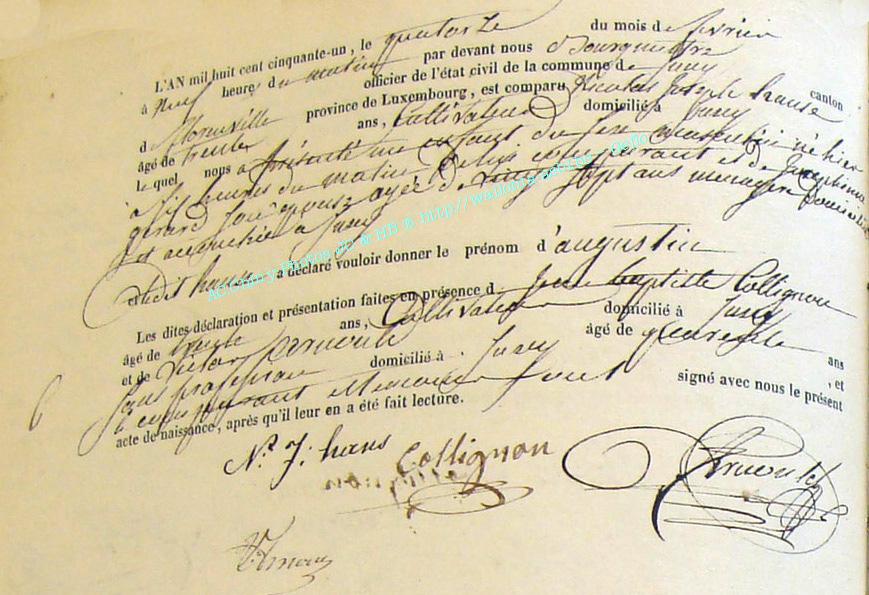 L'AN mil huit cent cinquante-un, le quatorze du mois de février
à neuf heures du matin par devant nous Bourgmestre
officier de l'état civil de la commune de Juzy canton
d province de Luxembourg, est comparu Nicolas Joseph hanse
âgé de trente ans, Cultivateur domicilié à Juzy
le quel nous a présenté un enfant du sexe masculin né hier
à six heures du matin de lui comparant et de Josephine
gerard son épouse agée de sept ans menagère domiciliée
et à Juzy
ledit hans a déclaré vouloir donner le prénom d'augustin
Les dites déclaration et présentation faites en présence d Jean baptiste Collignon
âgé de trente ans, Cultivateur domicilié à Juzy
et de victor arnould âgé de quarente ans
sans profession domicilié à Juzy , et
le comparant et temoins ont signé avec nous le présent
acte de naissance, après qu'il leur en a été fait lecture.
N. J. hans Collignon Arnould